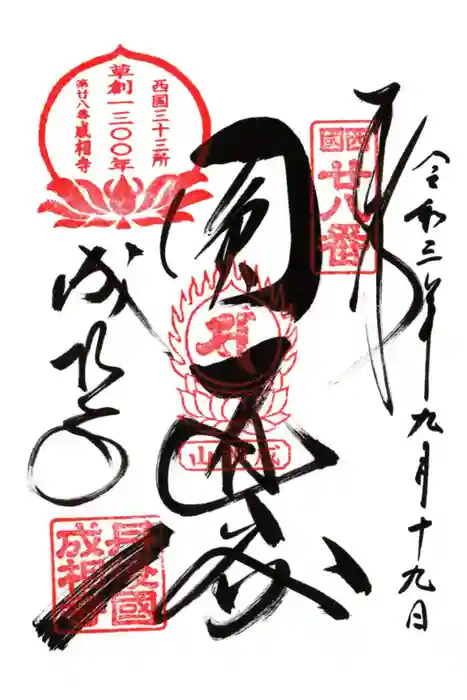 令和三年九月十九日
奉拝
西國
廿八番
西国三十三所
草創一三〇〇年
第廿八番成相寺
圓
山相成
成相寺
丹後國
成相寺